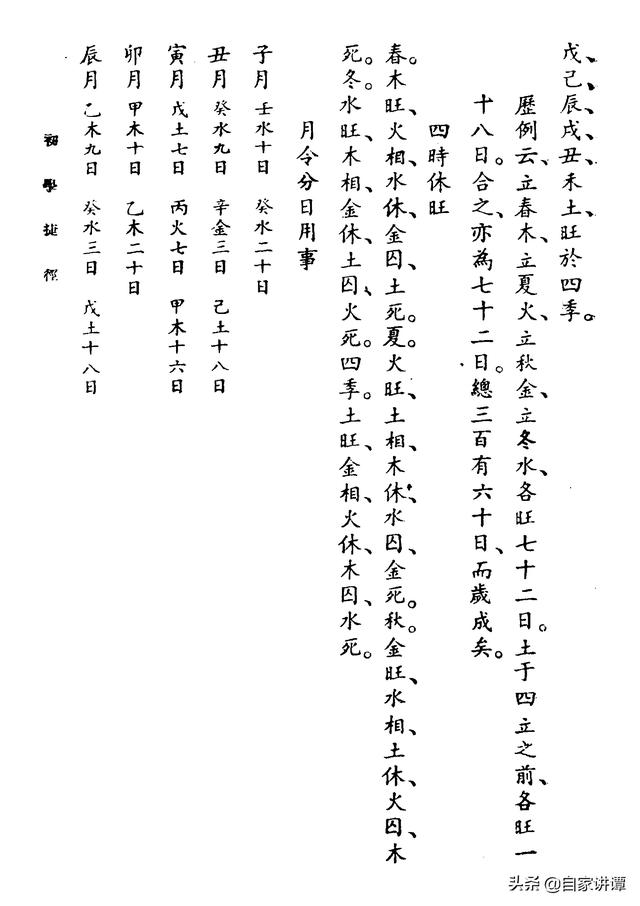 戊、己、辰、戌、丑、未土、旺於四季。
歷例云、立春木、立夏火、立秋金、立冬水、各旺七十二日。土于四立之前、各旺一
十八日。合之、亦為七十二日。總三百有六十日、而歲成矣。
四時休旺
春。木旺、火相、水休、金囚、土死。夏。火旺、土相、木休、水囚、金死。秋。金旺、水相、土休、火囚、木
死。冬。水旺、木相、金休、土囚、火死。四季。土旺、金相、火休、木囚、水死。
月令分日用事
子月 壬水十日 癸水二十日
丑月 癸水九日 辛金三日 己土十八日
寅月 戊土七日 丙火七日 甲木十六日
卯月 甲木十日 乙木二十日
辰月 乙木九日 癸水三日 戊土十八日
初學捷徑
头条 @自家讲谭